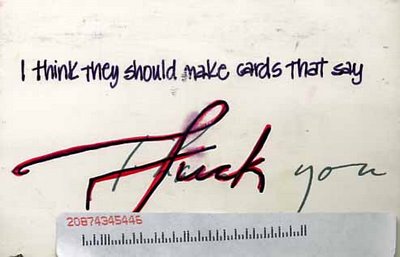 I think they should make cards that say
Fuck you
20874345446